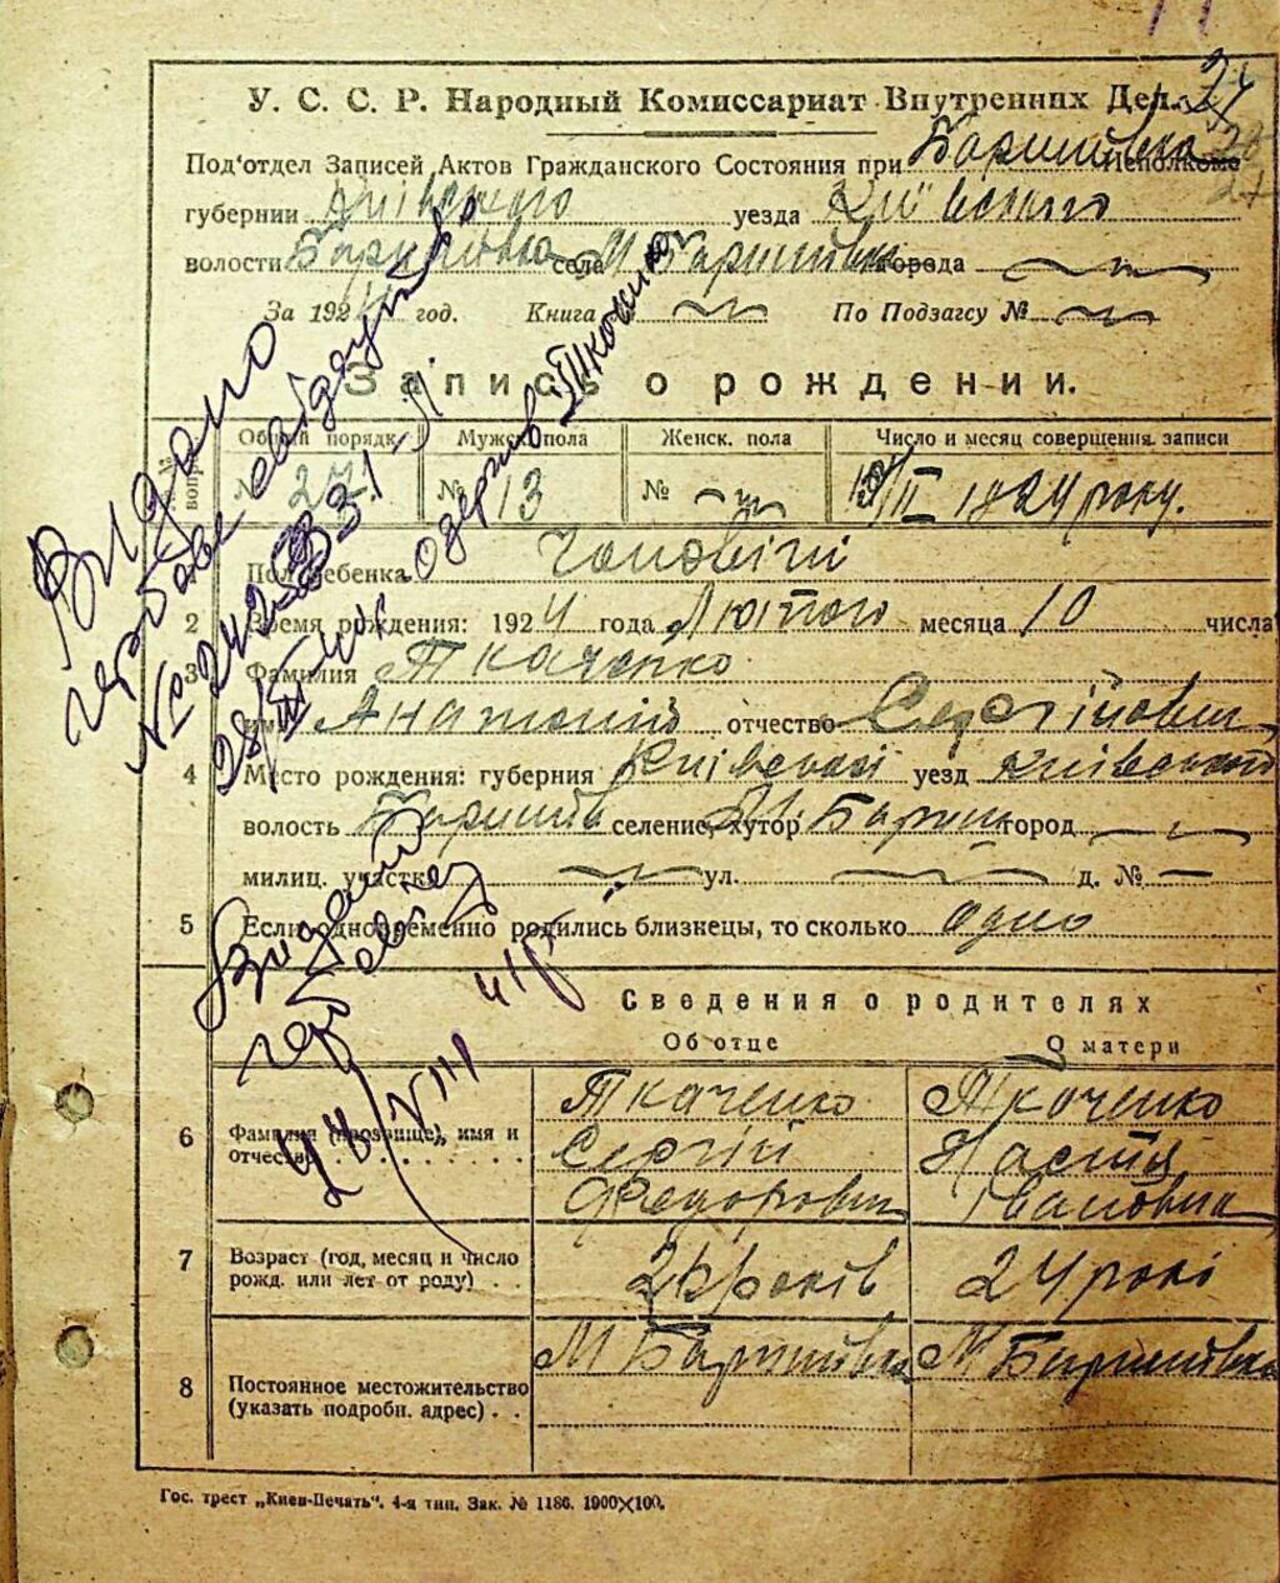 У. С. С. Р. Народный Комиссариат Внутренних Дел. 24
Под'отдел Записей Актов Гражданского Состояния при Баришівка Исполкоме
губернии Київського уезда Київського
волости Баришівка села М Баришівка города
За 1924 год. Книга № По Подзагсу №
Запись о рождении.
Общий порядк. Мужск. пола Женск. пола Число и месяц совершения записи
№ 27 № 13 № /II 1924 року.
Пол ребенка чоловічий
2 Время рождения: 1924 года Лютого месяца 10 числа
3 Фамилия Ткаченко
имя Анатолій отчество Сергійович
4 Место рождения: губерния Київської уезд Київського
волость Баришів селение, хутор М. Бариш город
милиц. участка ул. д. №
5 Если одновременно родились близнецы, то сколько одно
Сведения о родителях
Об отце О матери
6 Фамилия (прозвище), имя и отчество
Ткаченко Ткаченко
Сергій Настя
Федорович Івановна
7 Возраст (год, месяц и число рожд. или лет от роду)
років 24 рокі
8 Постоянное местожительство (указать подробн. адрес)
М Баришівка М Баришівка
Гос. трест „Киев-Печать“. 4-я тип. Зак. № 1186. 1000×100.
Видано
свідоцтво
одержив Ткаченко
Виданий